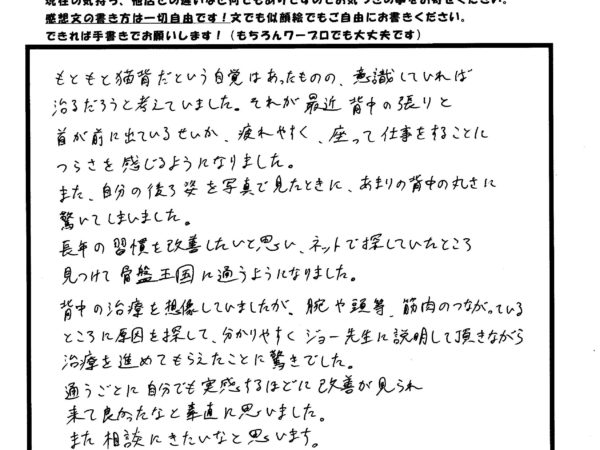 現在の気持ち、他店との違いなど何でもありですのでお気づきの事をお寄せください。
感想文の書き方は一切自由です！文でも似顔絵でもご自由にお書きください。
できれば手書きでお願いします！（もちろんワープロでも大丈夫です）
もともと猫背だという自覚はあったものの、意識していれば
治るだろうと考えていました。それが最近背中の張りと
首が前に出ているせいか、疲れやすく、座って仕事をすることに
つらさを感じるようになりました。
また、自分の後ろ姿を写真で見たときに、あまりの背中の丸さに
驚いてしまいました。
長年の習慣を改善したいと思い、ネットで探していたところ
見つけて骨盤王国に通うようになりました。
背中の治療を想像していましたが、腕や頭等、筋肉のつながっている
ところに原因を探して、分かりやすくジョー先生に説明して頂きながら
治療を進めてもらえたことに驚きでした。
通うごとに自分でも実感するほどに改善が見られ
来て良かったなと素直に思いました。
また相談にきたいなと思います。